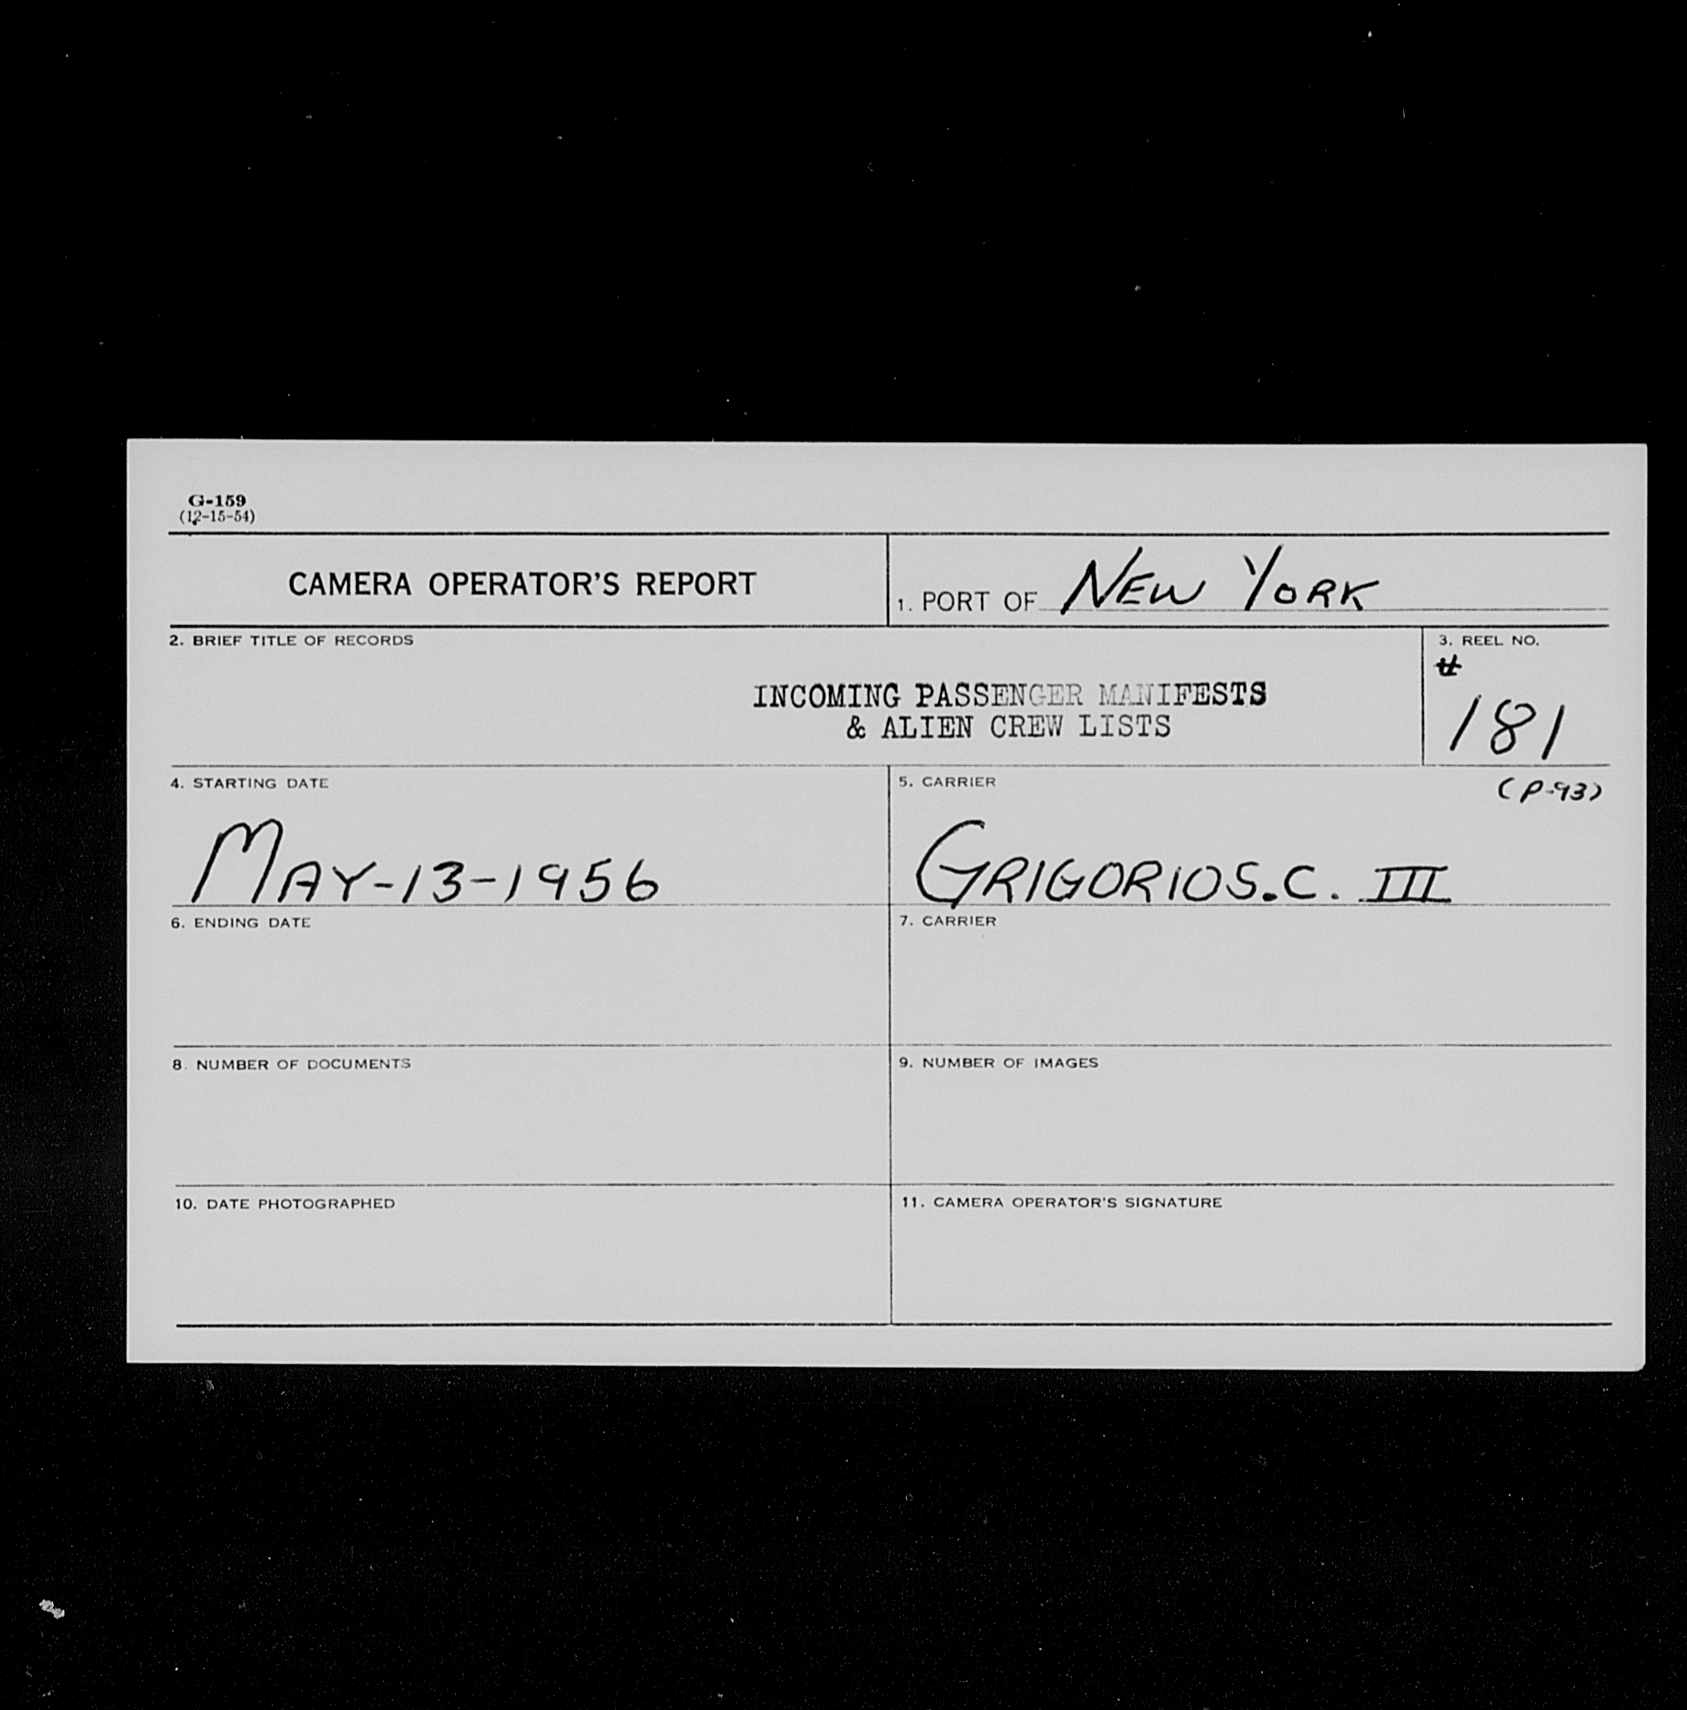 G-159
(12-15-54)
CAMERA OPERATOR'S REPORT
1. PORT OF NEW YORK
2. BRIEF TITLE OF RECORDS
INCOMING PASSENGER MANIFESTS
& ALIEN CREW LISTS
3. REEL NO.
#
181
4. STARTING DATE
MAY-13-1956
5. CARRIER
(P-93)
GRIGORIOS.C. III
6. ENDING DATE
7. CARRIER
8. NUMBER OF DOCUMENTS
9. NUMBER OF IMAGES
10. DATE PHOTOGRAPHED
11. CAMERA OPERATOR'S SIGNATURE